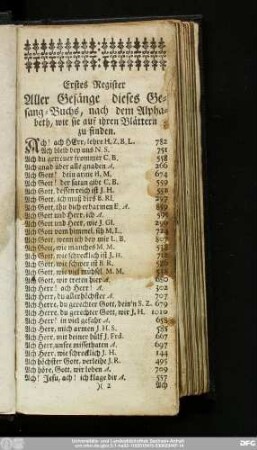 Erstes Register
Aller Gesänge dieses Ge-
sang-Buchs, nach dem Alpha-
beth, wie sie auf ihren Blättern
zu finden.
Ach! ach HErr, lehre H.Z.B.L. 782
Ach bleib bey uns N.S. 751
Ach du getreuer frommer C.B. 558
Ach gnad über alle gnaden A. 266
Ach Gott! dein arme H.M. 674
Ach Gott! der satan gibt C.B. 559
Ach Gott, dessen reich ist J.H.
Ach Gott, ich muß dirs B.RI. 297
Ach Gott, thu dich erbarmen E.A. 889
Ach Gott und Herr, ich A. 595
Ach Gott und Herr, wie J.Gl. 299
Ach Gott vom himmel, sieh M.L.
Ach Gott, wenn ich bey mir L.B. 807
Ach Gott, wie manches M.M.
Ach Gott, wie schrecklich ist J.H.
Ach Gott, wie schwer ist B.R.
Ach Gott, wie viel trübsal M.M.
Ach Gott, wir treten hier A. 660
Ach Herr! ach Herr! A. 302
Ach Herr, du allerhöchster A. 707
Ach Herre, du gerechter Gott, dein'n S.Z. 679
Ach Herre, du gerechter Gott, wir J.H. 1010
Ach Herr! in viel gefahr A. 658
Ach Herr, mich armen J.H.S. 588
Ach Herr, mit deiner hülf J.Frd. 667
Ach Herr, unsre missethaten A. 697
Ach Herr, wie schrecklich J.H. 144
Ach höchster Gott, verleihe J.R. 495
Ach höre, Gott, wir loben A. 709
Ach! Jesu, ach! ich klage dir A. 557
)( 2 Ach